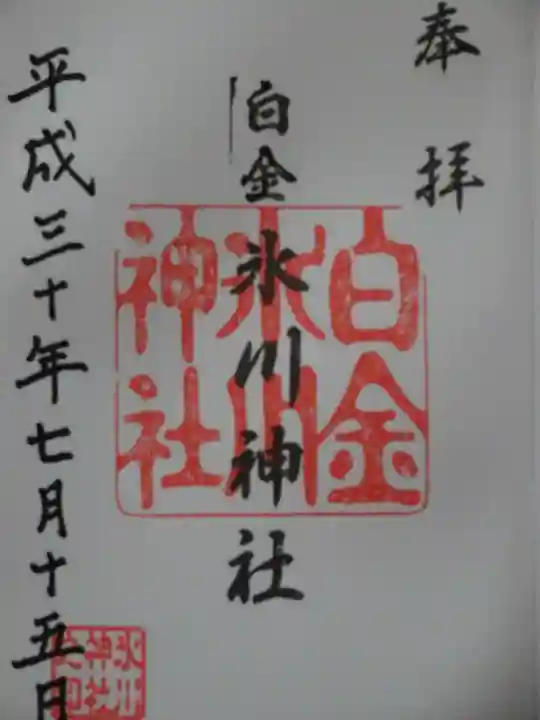 奉拝
白金
氷川神社
平成三十年七月十五日
白金
氷川
神社
氷川
神社
之印